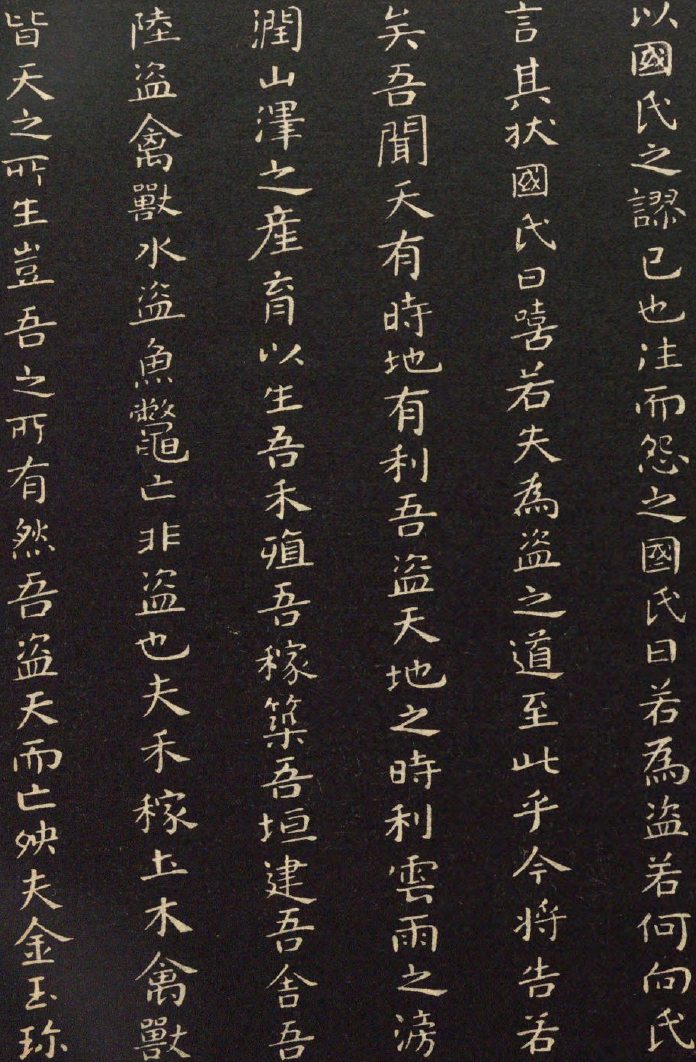 以國氏之謬己也往而怨之國氏曰若為盜若何向氏
言其狀國氏曰嘻若失為盜之道至此乎今將告若
矣吾聞天有時地有利吾盜天地之時利雲雨之滂
潤山澤之產育以生吾禾殖吾稼築吾垣建吾舍吾
陸盜禽獸水盜魚鼈亡非盜也夫禾稼土木禽獸
皆天之所生豈吾之所有然吾盜天而亡殃夫金玉珎